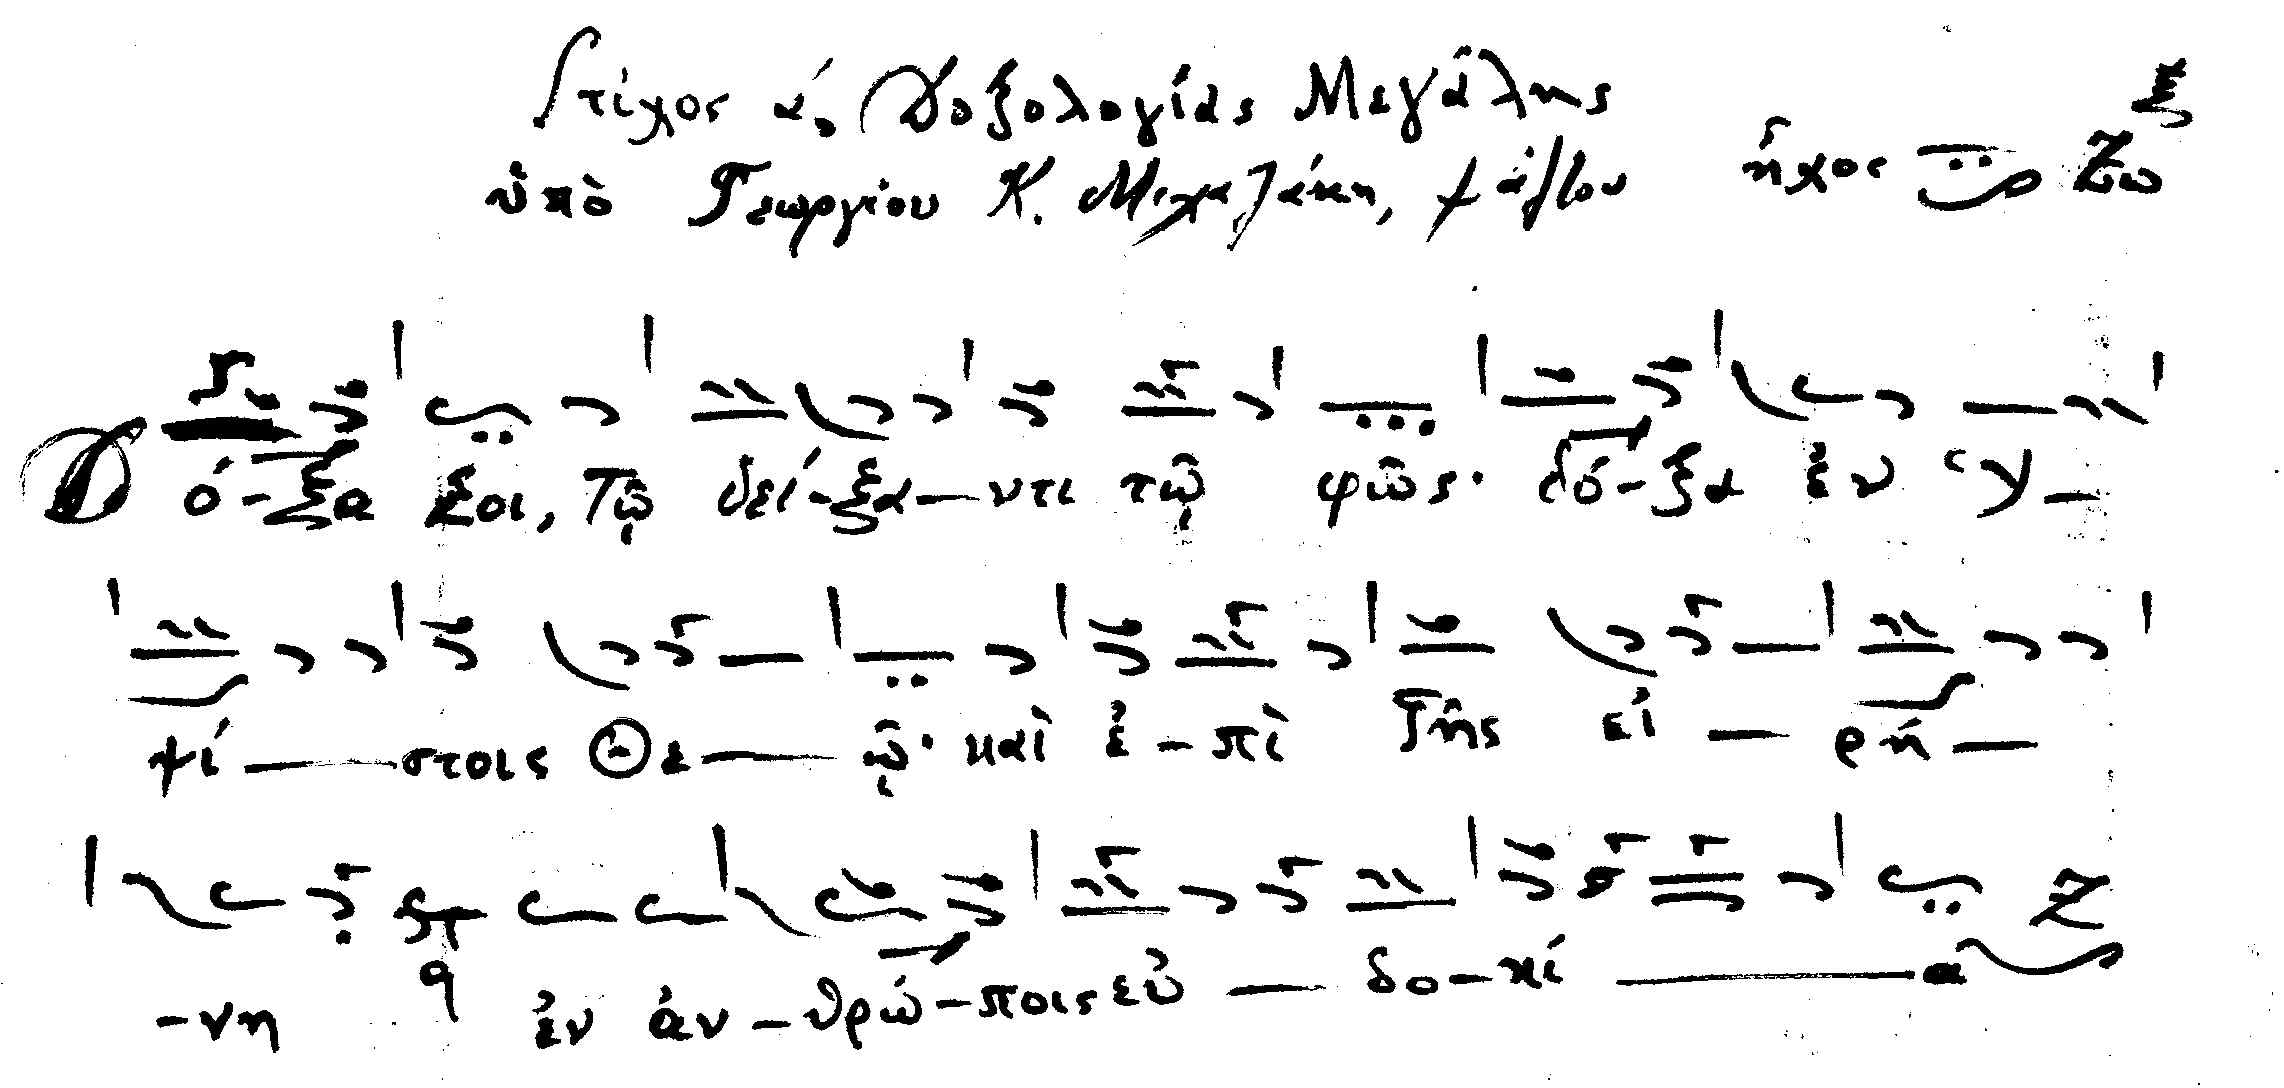 Στίχος α΄, Δοξολογίας Μεγάλης
ὑπὸ Γεωργίου Κ. Μιχαλάκη, ψάλτου ἦχος Ζω
Δό-ξα Σοι, Τῷ δεί-ξα-ντι τῷ φῶς· δό-ξα ἐν Ὑ-
ψί-στοις Θε-ῷ· καὶ ἐ-πὶ Γῆς εἰ-ρή-
-νη ἐν ἀν-θρώ-ποις εὐ-δο-κί-α